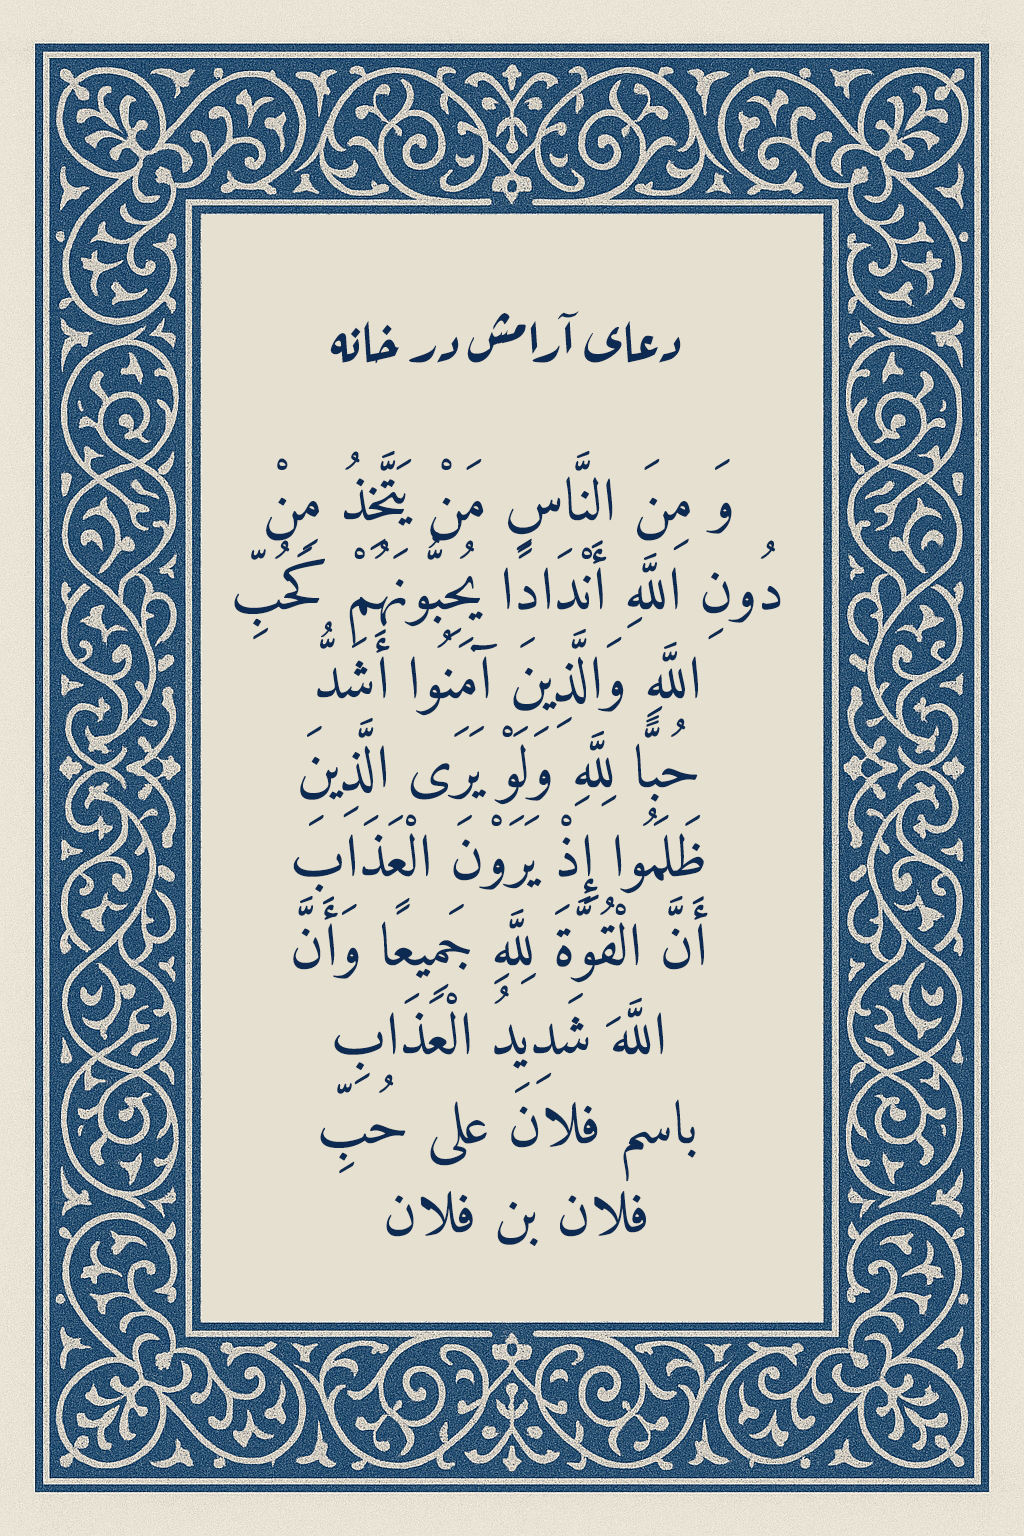 دعای آرامش در خانه
وَ مِنَ النَّاسِ مَنْ يَتَّخِذُ مِنْ
دُونِ اللَّهِ أَنْدَادًا يُحِبُّونَهُمْ كَحُبِّ
اللَّهِ وَالَّذِينَ آمَنُوا أَشَدُّ
حُبًّا لِلَّهِ وَلَوْ يَرَى الَّذِينَ
ظَلَمُوا إِذْ يَرَوْنَ الْعَذَابَ
أَنَّ الْقُوَّةَ لِلَّهِ جَمِيعًا وَأَنَّ
اللَّهَ شَدِيدُ الْعَذَابِ
باسم فلانَ على حُبِّ
فلان بن فلان